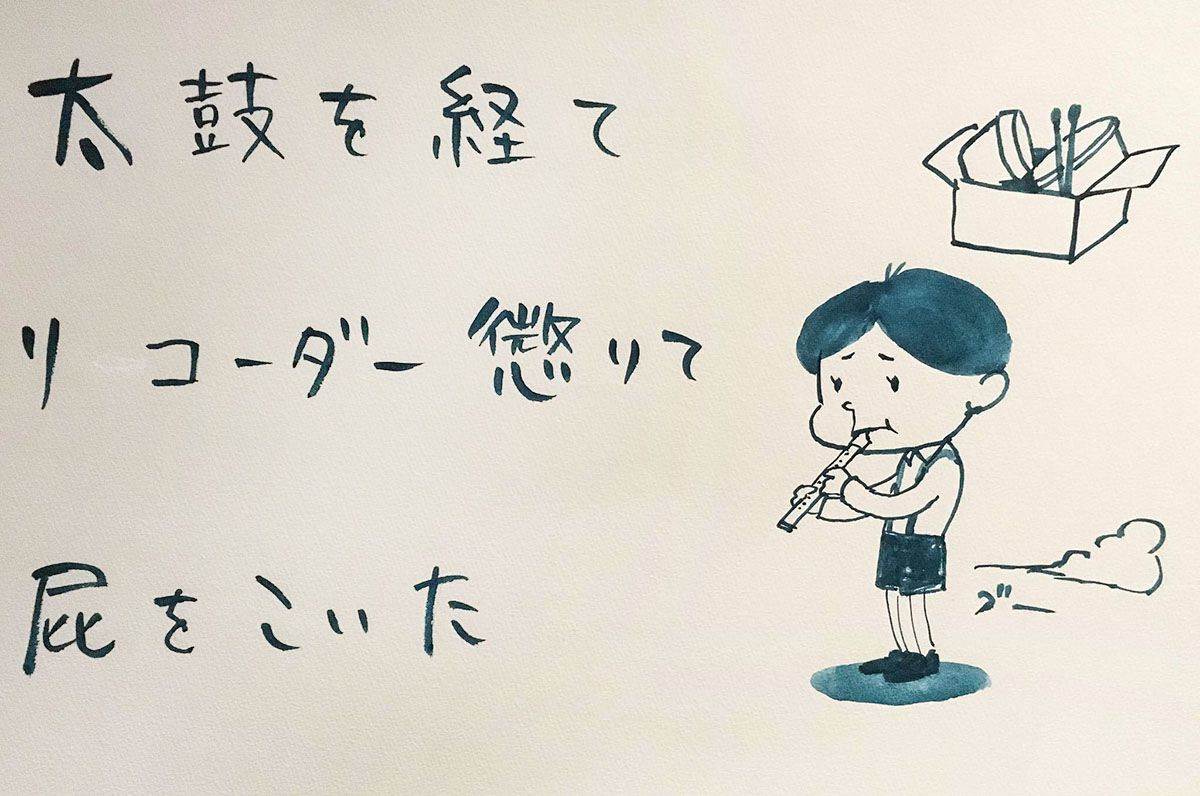 太鼓を経て
リコーダー懲りて
屁をこいた
ブー